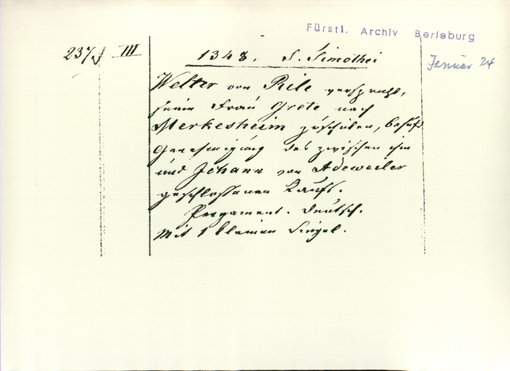 Fürstl. Archiv Berleburg
237 III
1348. S. Timothei
Januar 24
Welter von Rile verspricht,
seine Frau Grete nach
Merkesheim zu schicken, behufs
Genehmigung des zwischen ihm
und Johann von Adeweiler
geschlossenen Kaufs.
Pergament. Deutsch.
Mit 1 kleinen Siegel.